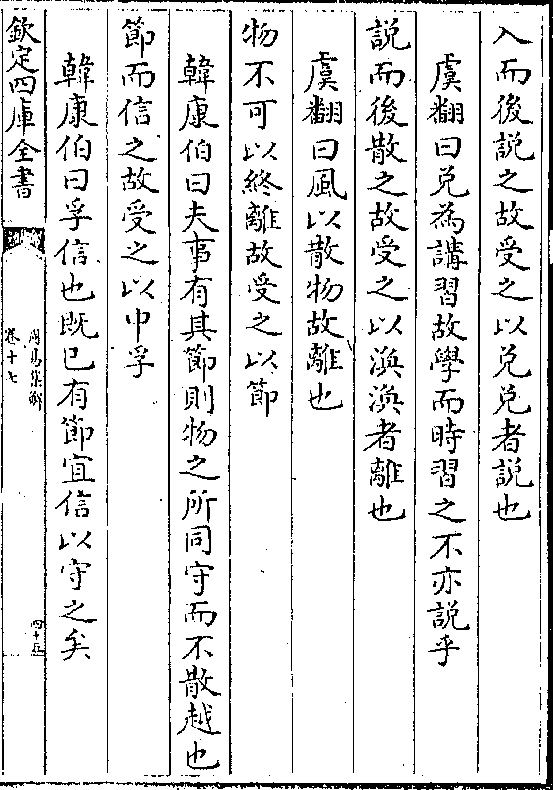 入而後說之故受之以兌兌者說也
虞翻曰兌為講習故學而時習之不亦說乎
說而後散之故受之以渙渙者離也
虞翻曰風以散物故離也
物不可以終離故受之以節
韓康伯曰夫事有其節則物之所同守而不散越也
節而信之故受之以中孚
韓康伯曰孚信也既已有節宜信以守之矣
欽定四庫全書
周易集解
卷十七
四十五